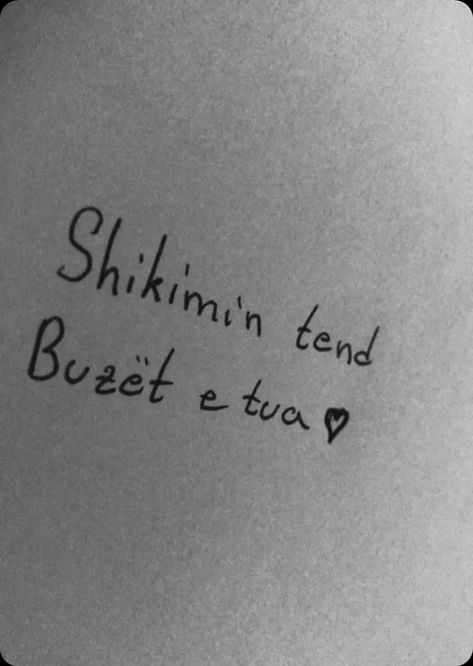 Shikimin tend
Buzët e tua ♥